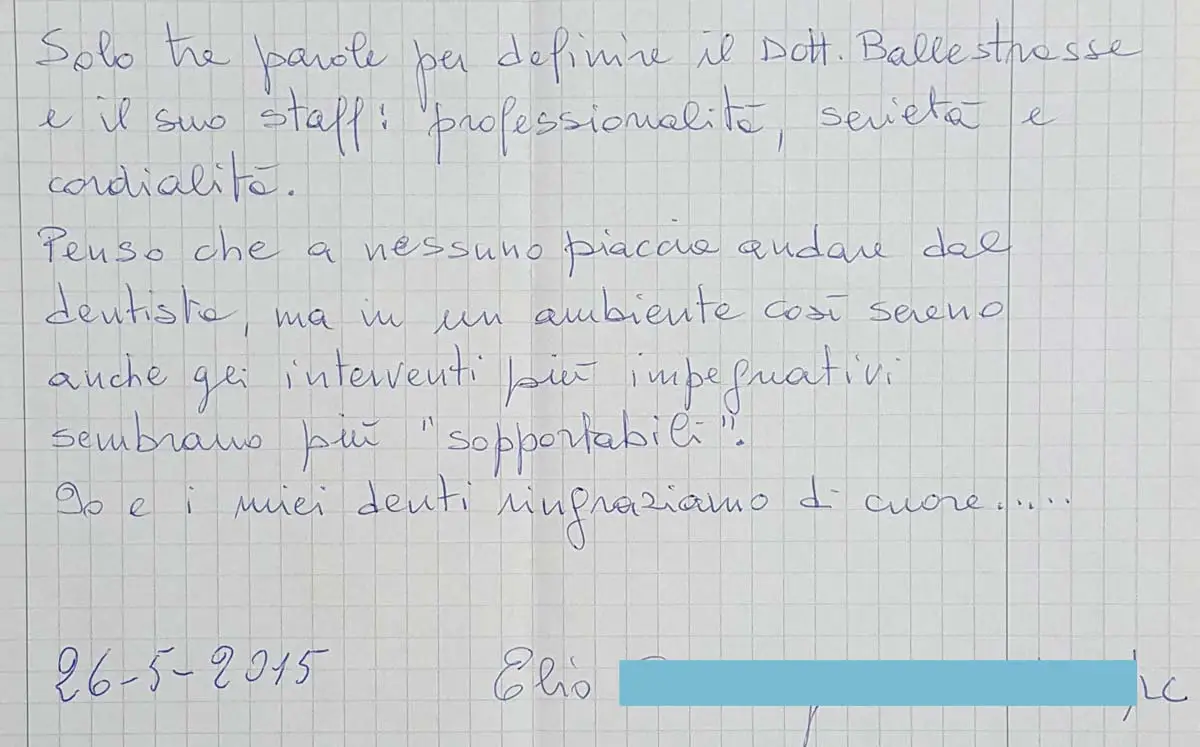 Solo tre parole per definire il Dott. Ballestrasse
e il suo staff: professionalità, serietà e
cordialità.
Penso che a nessuno piaccia andare dal
dentista, ma in un ambiente così sereno
anche gli interventi più impegnativi
sembrano più "sopportabili".
Io e i miei denti ringraziamo di cuore.....
26-5-2015 Elio